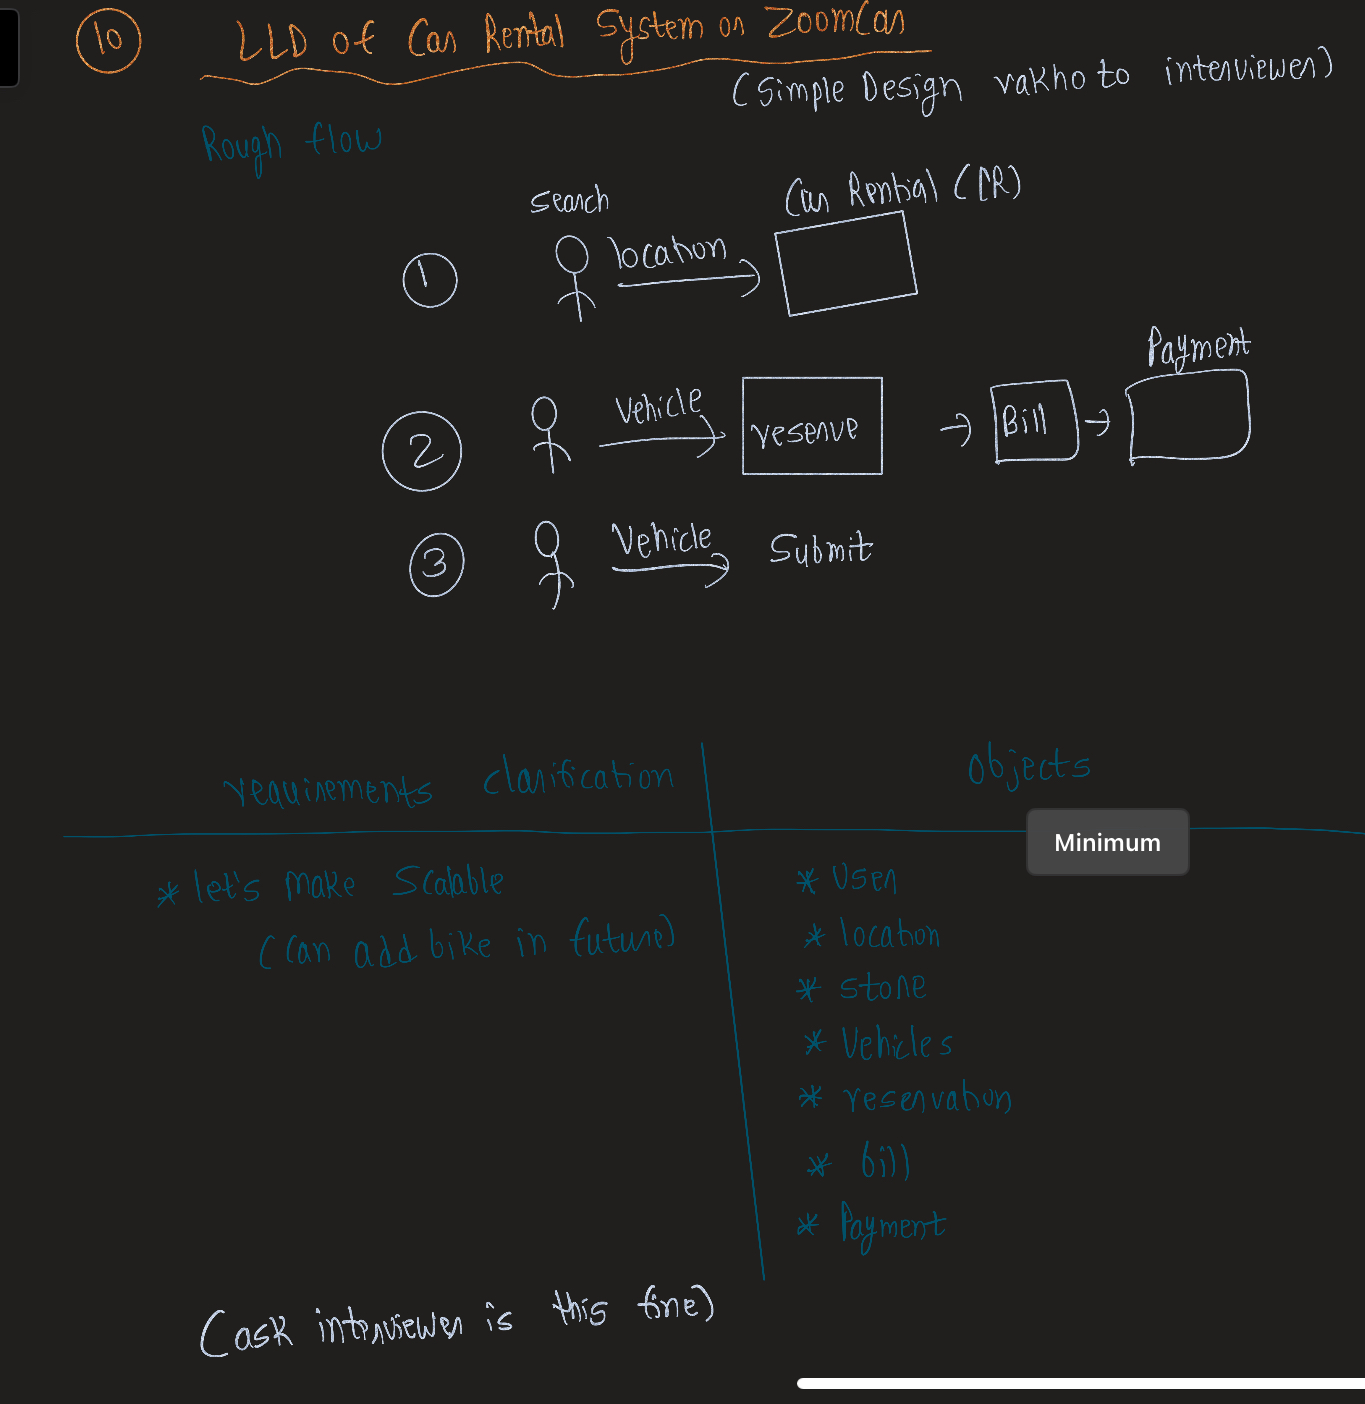 10
LLD of Car Rental System or ZoomCar
(Simple Design rakho to interviewer)
Rough flow
search
Car Rential (CR)
1
location
Payment
2
Vehicle
reserve
Bill
3
Vehicle
Submit
requirements clarification
Objects
Minimum
* let's make Scalable
(Can add bike in future)
* User
* location
* store
* Vehicles
* reservation
* bill
* Payment
(ask interviewer is this fine)